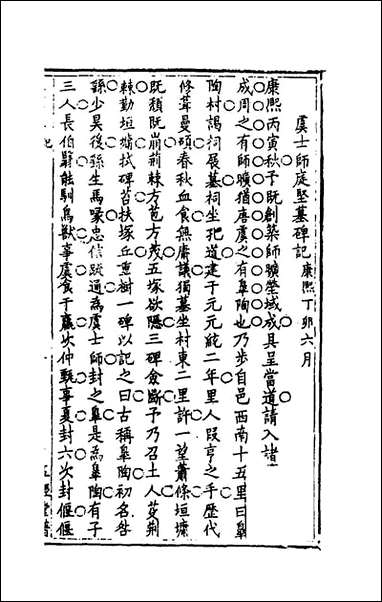 虞士師庭堅墓碑記康熙丁卯六月
康熙丙寅秋予既創築師曠塋域成具呈當道請入諸
成周之有師曠猶唐虞之有皐陶也乃步自邑西南十五里曰皐
陶村謁祠展墓祠坐圯道建于元元統二年里人段亨之手歷代
修葺曼碩春秋血食無庸議獨墓坐村東二里許一望蕭條垣墉
既頽既崩荊棘方苞方茂五塚欲隱三碑僉斷予乃召土人芟荊
棘勤垣墉拭碑苔扶塚丘重樹一碑以記之曰古稱皐陶初名咎
繇少昊後孫生馬喙忠信䟽通為虞士師封之皐是為皐陶有子
三人長伯翳能馴鳥獸事虞食于嬴次仲甄事夏封六次封偃偃